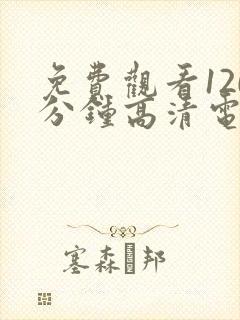 免費觀看120
分鐘高清電
塞森邦